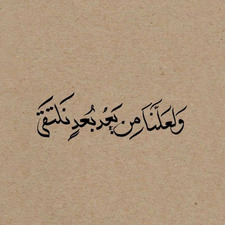 وَلَعَلَّنَا مِن بَعْد بُعدٍ نَلتَقَى